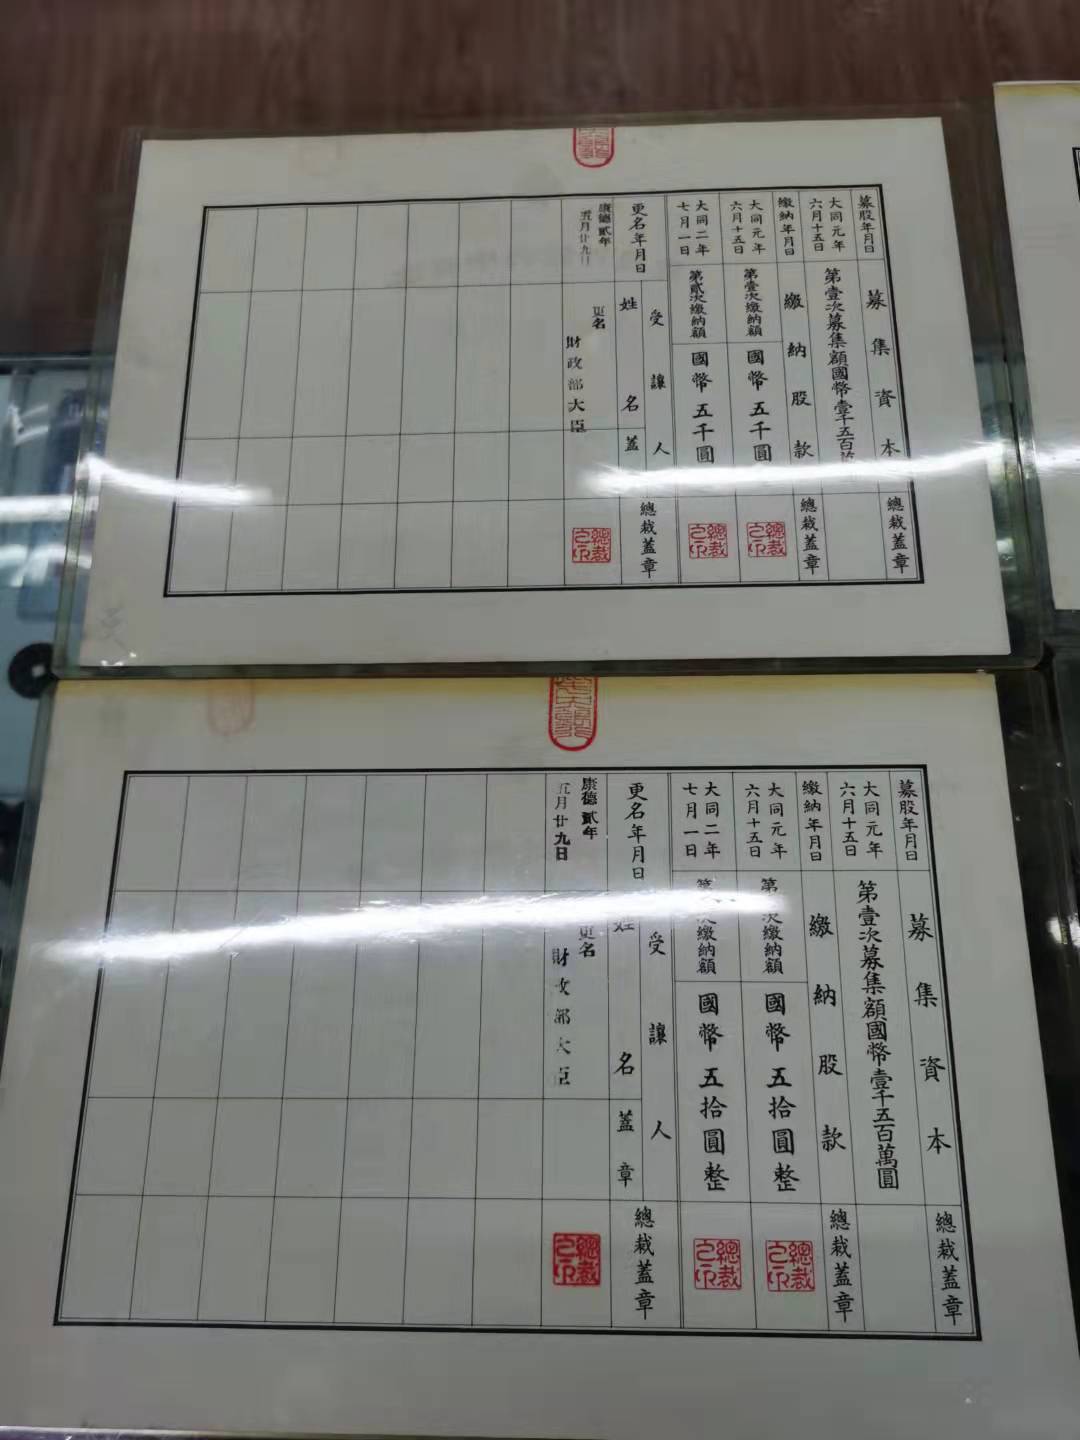 募股年月日
募集資本
總裁蓋章
大同元年
六月十五日
第壹次募集額國幣壹千五百
繳納年月日
繳納股款
總裁蓋章
大同元年
六月十五日
第壹次繳納額
國幣五千圓
總裁之印
大同二年
七月一日
第貳次繳納額
國幣五千圓
總裁之印
更名年月日
受讓人
姓名
蓋
總裁蓋章
康德貳年
五月廿九日
更名
財政部大臣
總裁之印
募股年月日
募集資本
總裁蓋章
大同元年
六月十五日
第壹次募集額國幣壹千五百萬圓
繳納年月日
繳納股款
總裁蓋章
大同元年
六月十五日
第次繳納額
國幣五拾圓整
總裁之印
大同二年
七月一日
第次繳納額
國幣五拾圓整
總裁之印
更名年月日
受讓人
姓名
蓋章
總裁蓋章
康德貳年
五月廿九日
更名
財政部大臣
總裁之印